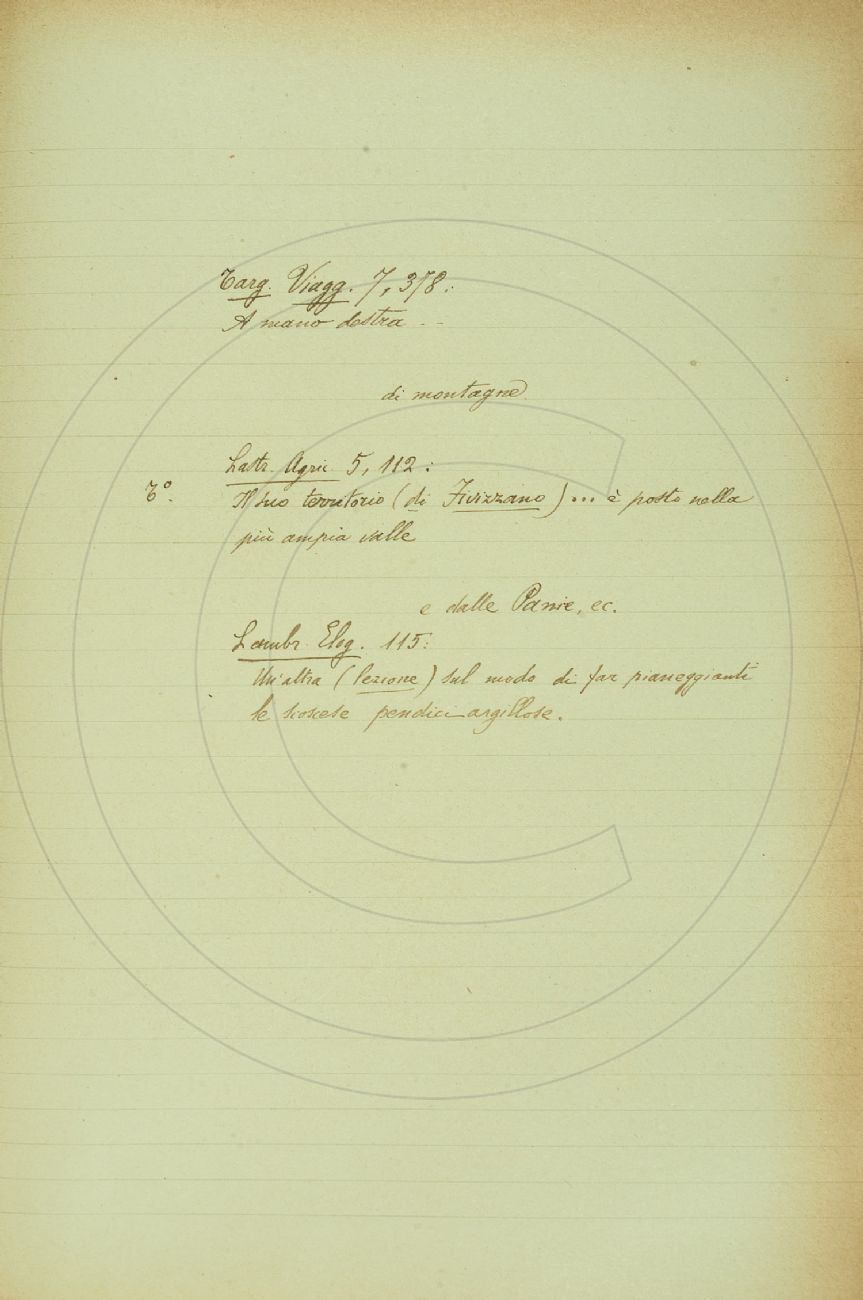 Targ. Viagg. 7, 378:
A mano destra ...
di montagne
Lastr. Agric. 5, 112:
T.°
Il suo territorio (di Fivizzano) ... è posto nella
più ampia valle
e dalle Panie, ec.
Lambr. Elog. 115:
Un'altra (lezione) sul modo di far pianeggianti
le scoscese pendici argillose.